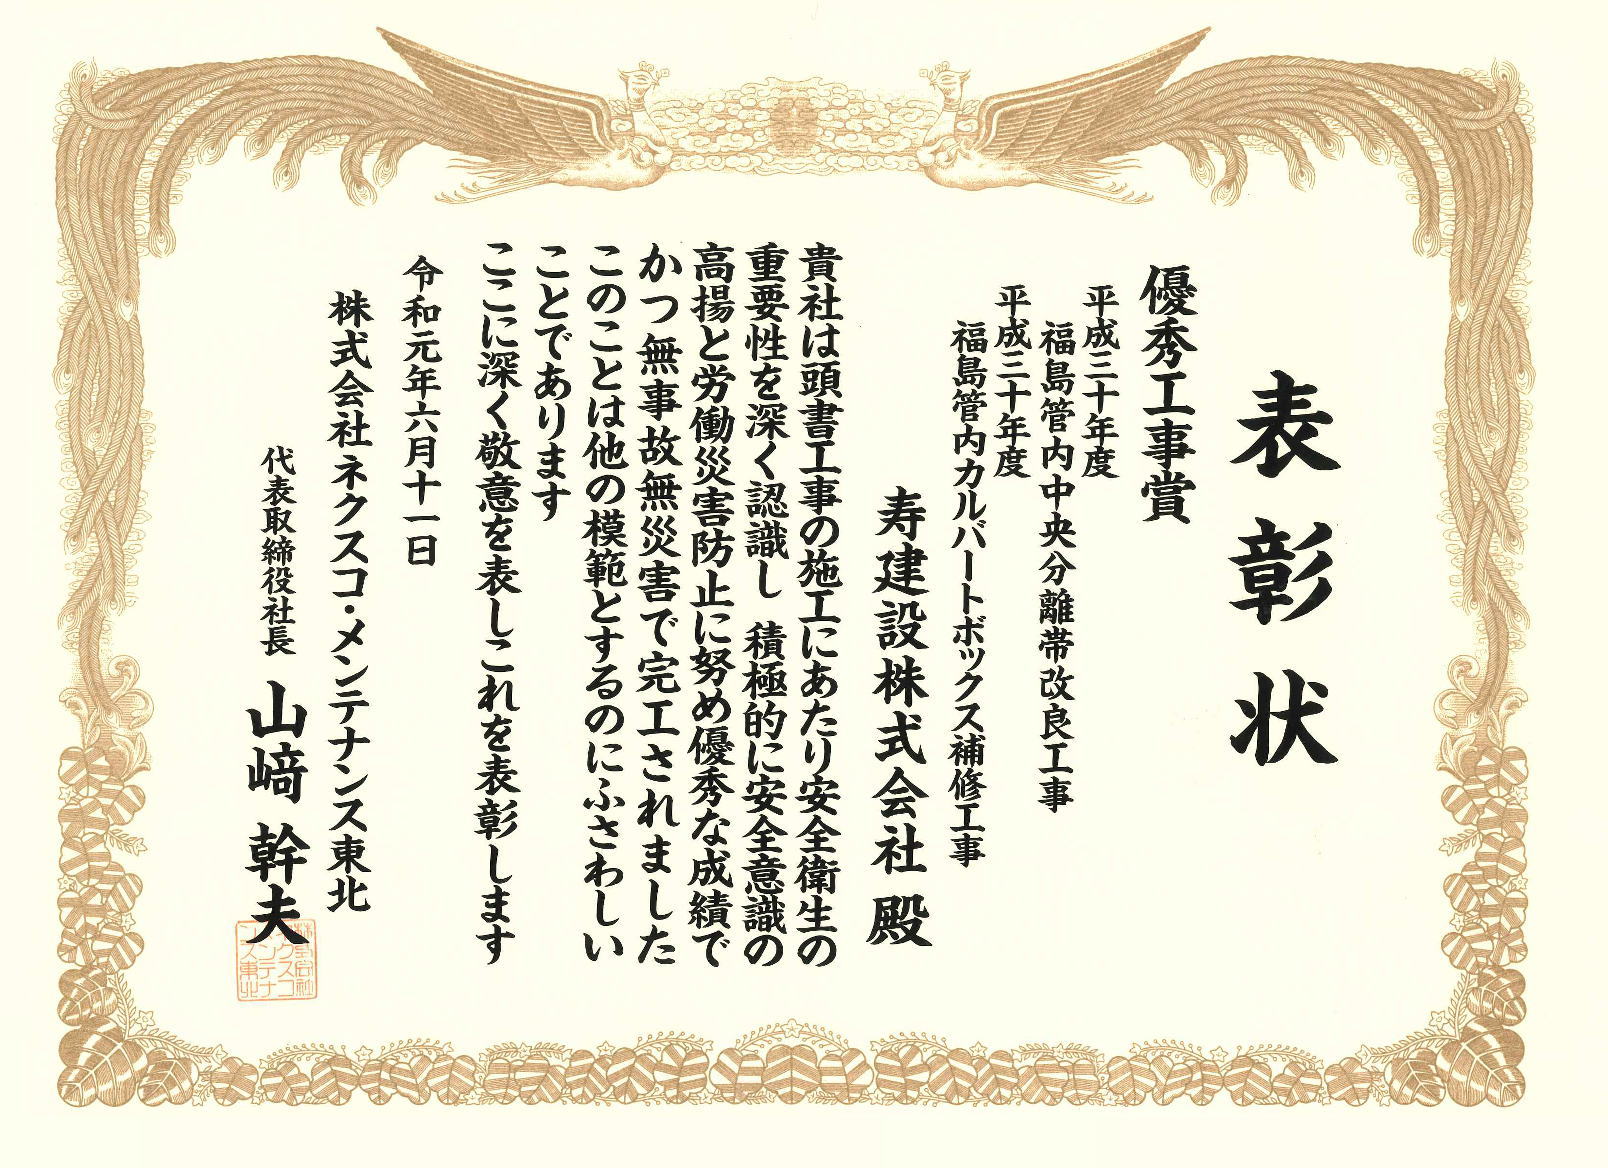 表彰状
優秀工事賞
平成三十年度
福島管内中央分離帯改良工事
平成三十年度
福島管内カルバートボックス補修工事
寿建設株式会社 殿
貴社は頭書工事の施工にあたり安全衛生の
重要性を深く認識し 積極的に安全意識の
高揚と労働災害防止に努め優秀な成績で
かつ無事故無災害で完工されました
このことは他の模範とするのにふさわしい
ことであります
ここに深く敬意を表しこれを表彰します
令和元年六月十一日
株式会社ネクスコ・メンテナンス東北
代表取締役社長 山﨑 幹夫
株式会社
ネクスコ
メンテナ
ンス東北